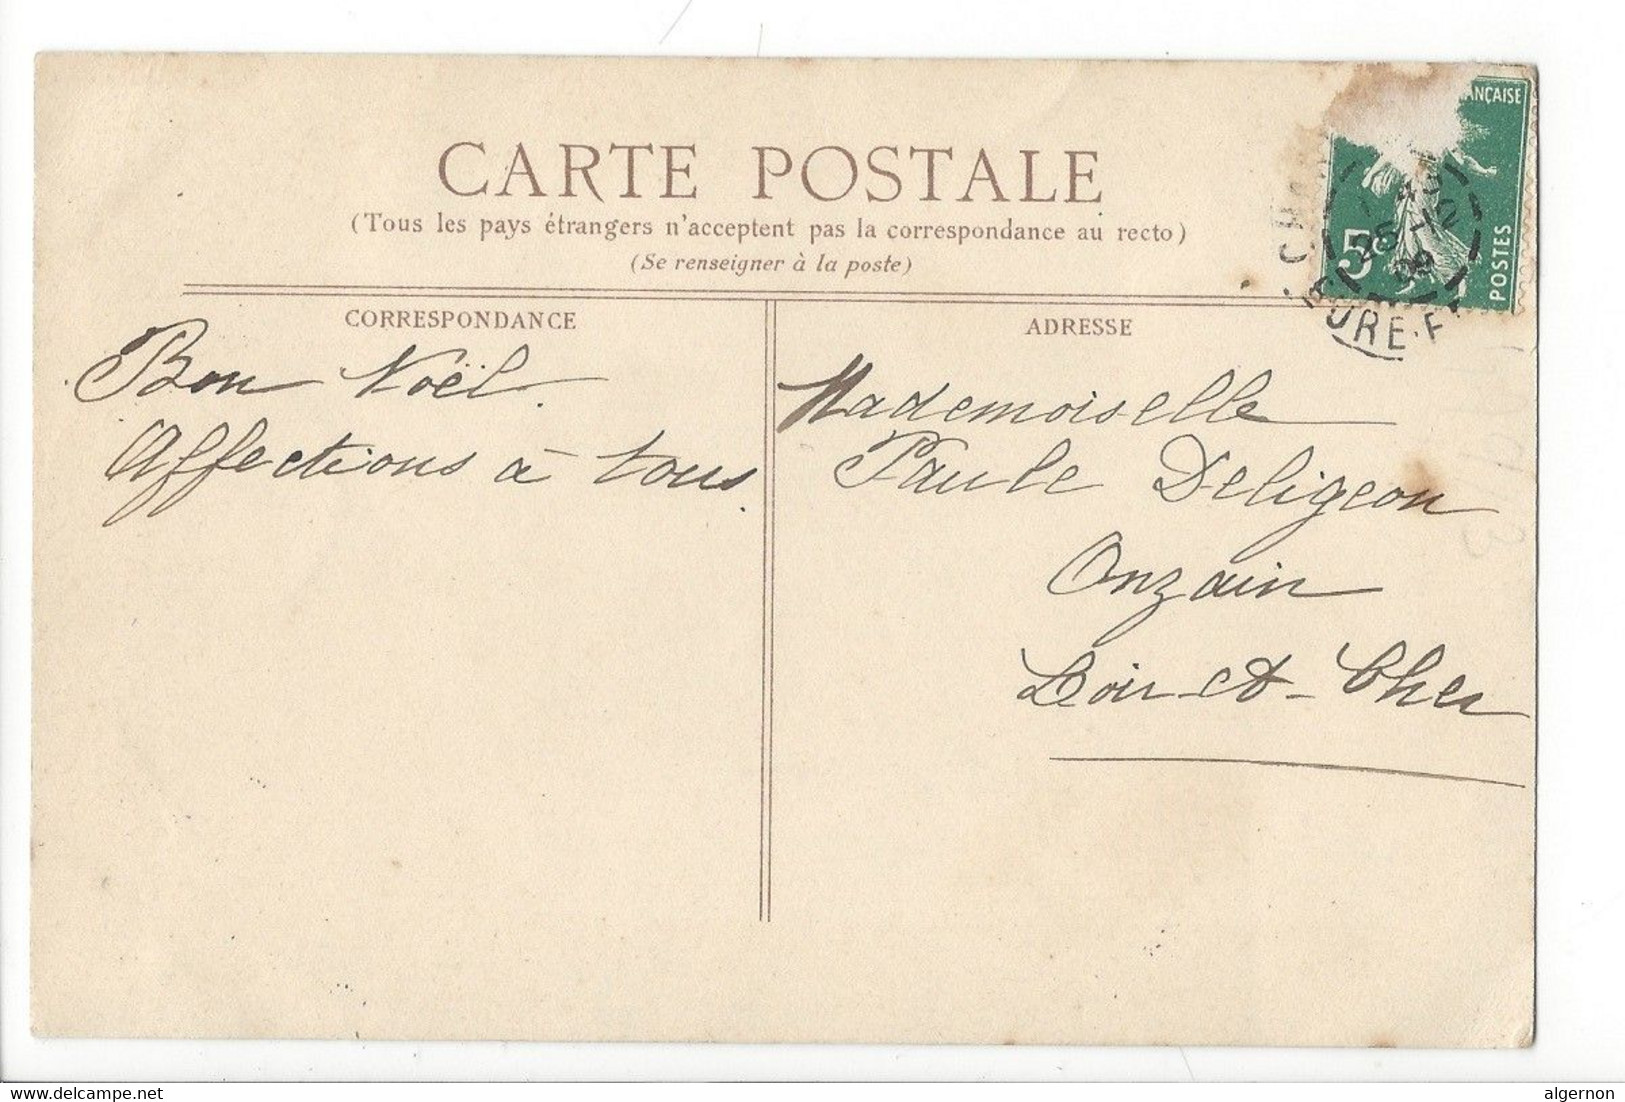 CARTE POSTALE
(Tous les pays étrangers n'acceptent pas la correspondance au recto)
(Se renseigner à la poste)
ANÇAISE
5c
POSTES
25-12
09
CORRESPONDANCE
Bon Noël.
Affections à tous.
ADRESSE
Mademoiselle
Paule Deligeon
Onzain
Loir-et-Cher
www.delcampe.net
algernon